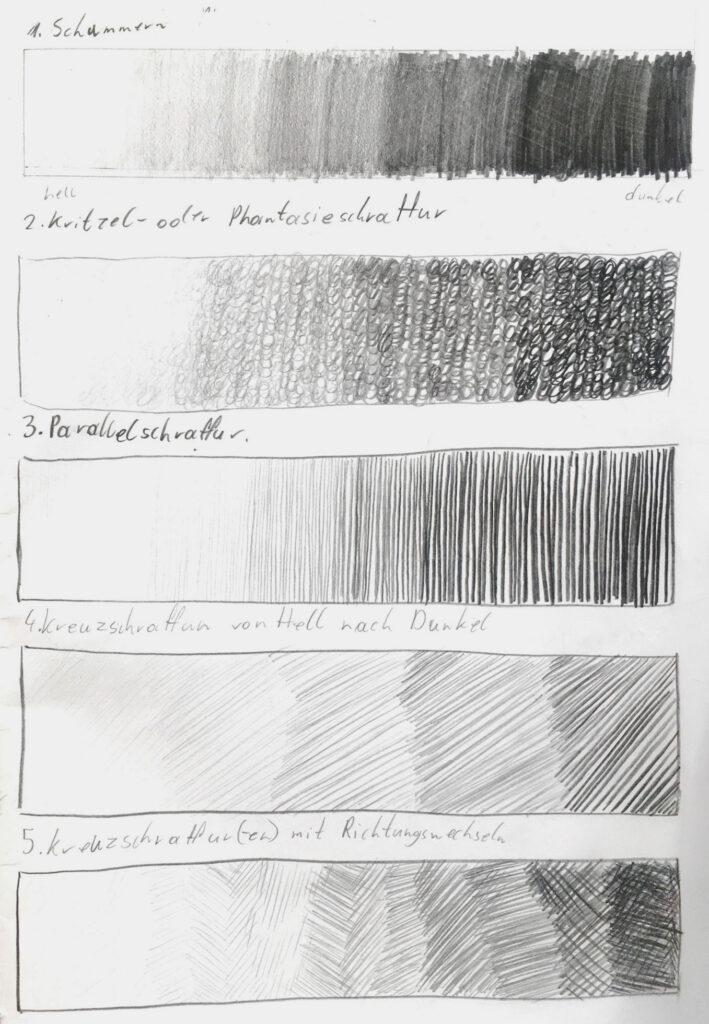 1. Schummern
hell dunkel
2. Kritzel- oder Phantasieschraffur
3. Parallelschraffur.
4. Kreuzschraffur von Hell nach Dunkel
5. Kreuzschraffur(-en) mit Richtungswechseln